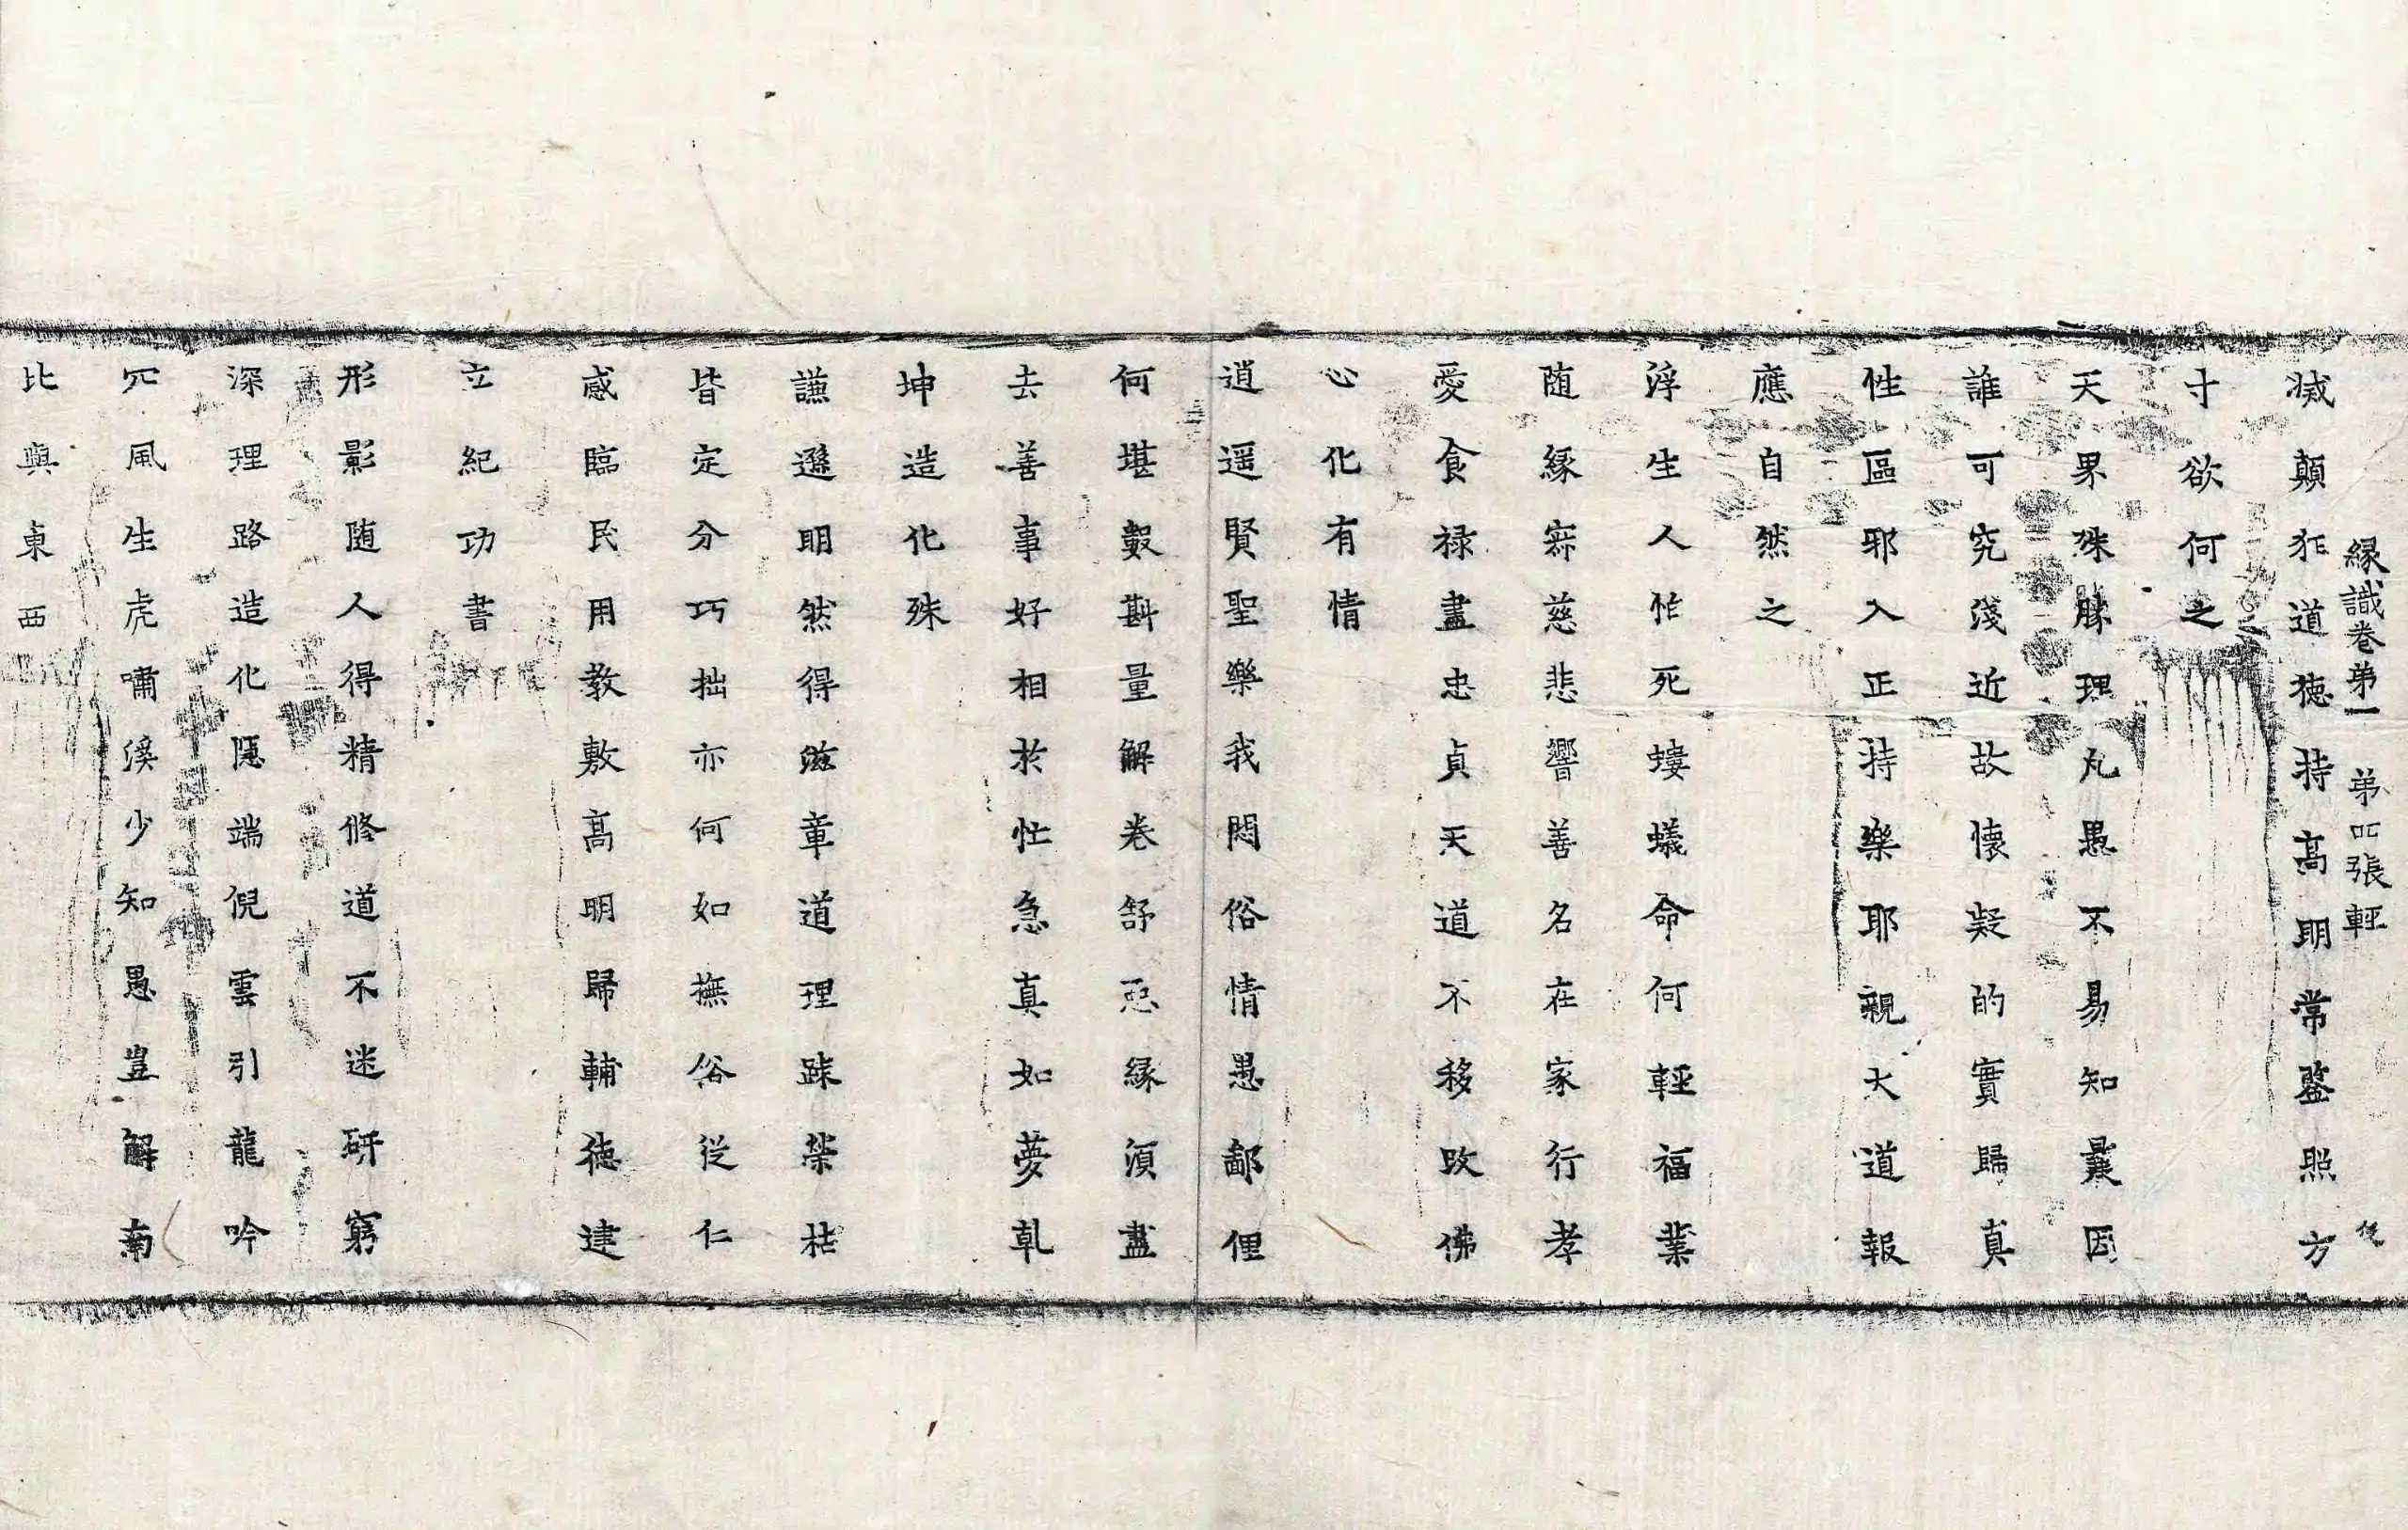 縁識卷第一　第四張　輕
滅顛狂道德持髙明常鑒照方
寸欲何之
天界殊勝理凡愚不易知曩因
誰可究淺近故懷疑的實歸真
性區邪入正持樂耶親大道報
應自然之
浮生人怕死螻蟻命何輕福業
随緣寂慈悲響善名在家行孝
愛食禄盡忠貞天道不移改佛
心化有情
逍遥賢聖樂我悶俗情愚鄙俚
何堪數斟量解卷舒惡緣須盡
去善事好相於忙急真如夢乹
坤造化殊
謙遜明然得滋章道理踈榮枯
皆定分巧拙亦何如撫俗從仁
感臨民用教敷髙明歸輔德建
立紀功書
形影随人得精修道不迷研窮
深理路造化隱端倪雲引龍吟
冗風生虎嘯溪少知愚豈解南
北與東西